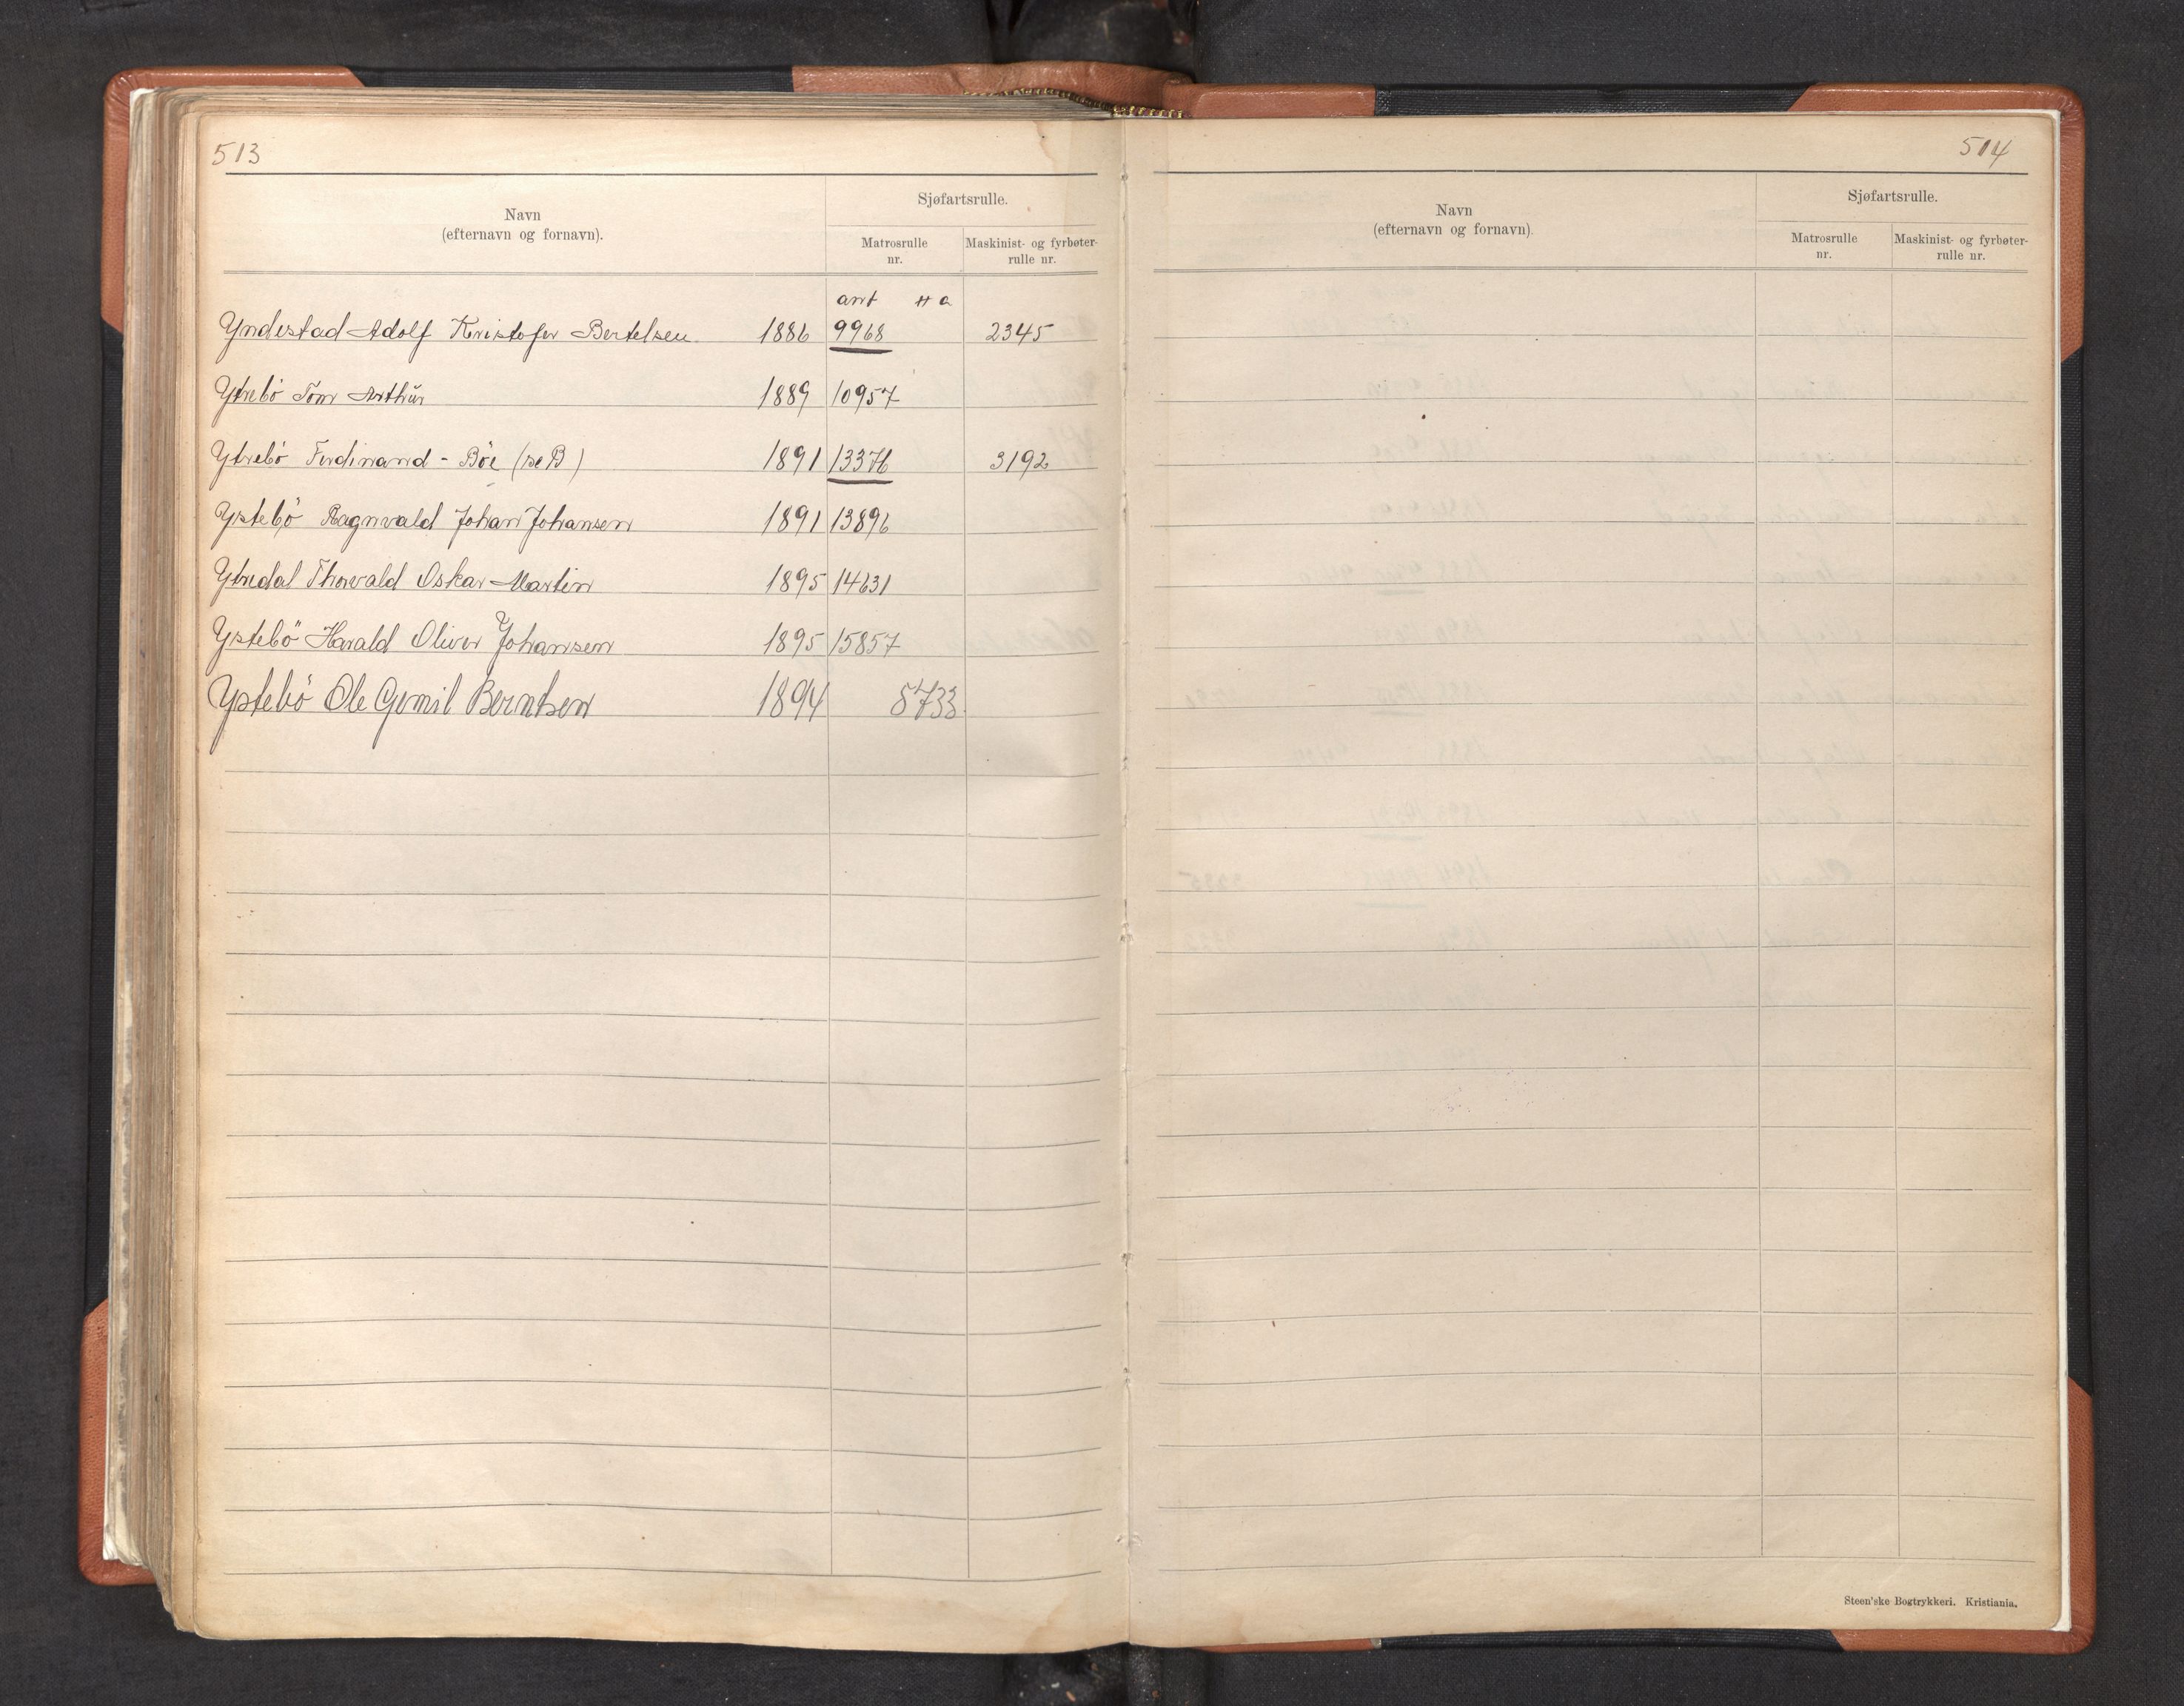 513
Navn
(efternavn og fornavn).
Sjøfartsrulle.
Matrosrulle
nr.
Maskinist- og fyrbøter-
rulle nr.
ant
Yndestad Adolf Kristofer Bertelsen 1886 9968 2345
Ytrebö Tom Arthur 1889 10957
Ytrebö Ferdinand - Böe (se B) 1891 13376 3192
Ystebö Ragnvald Johan Johansen 1891 13896
Ytredal Thorvald Oskar Martin 1895 14631
Ystebö Harald Oliver Johansen 1895 15857
Ystebö Ole Gemil Berntsen 1894 5733
504
Navn
(efternavn og fornavn).
Sjøfartsrulle.
Matrosrulle
nr.
Maskinist- og fyrbøter-
rulle nr.
Steen'ske Bogtrykkeri. Kristiania.